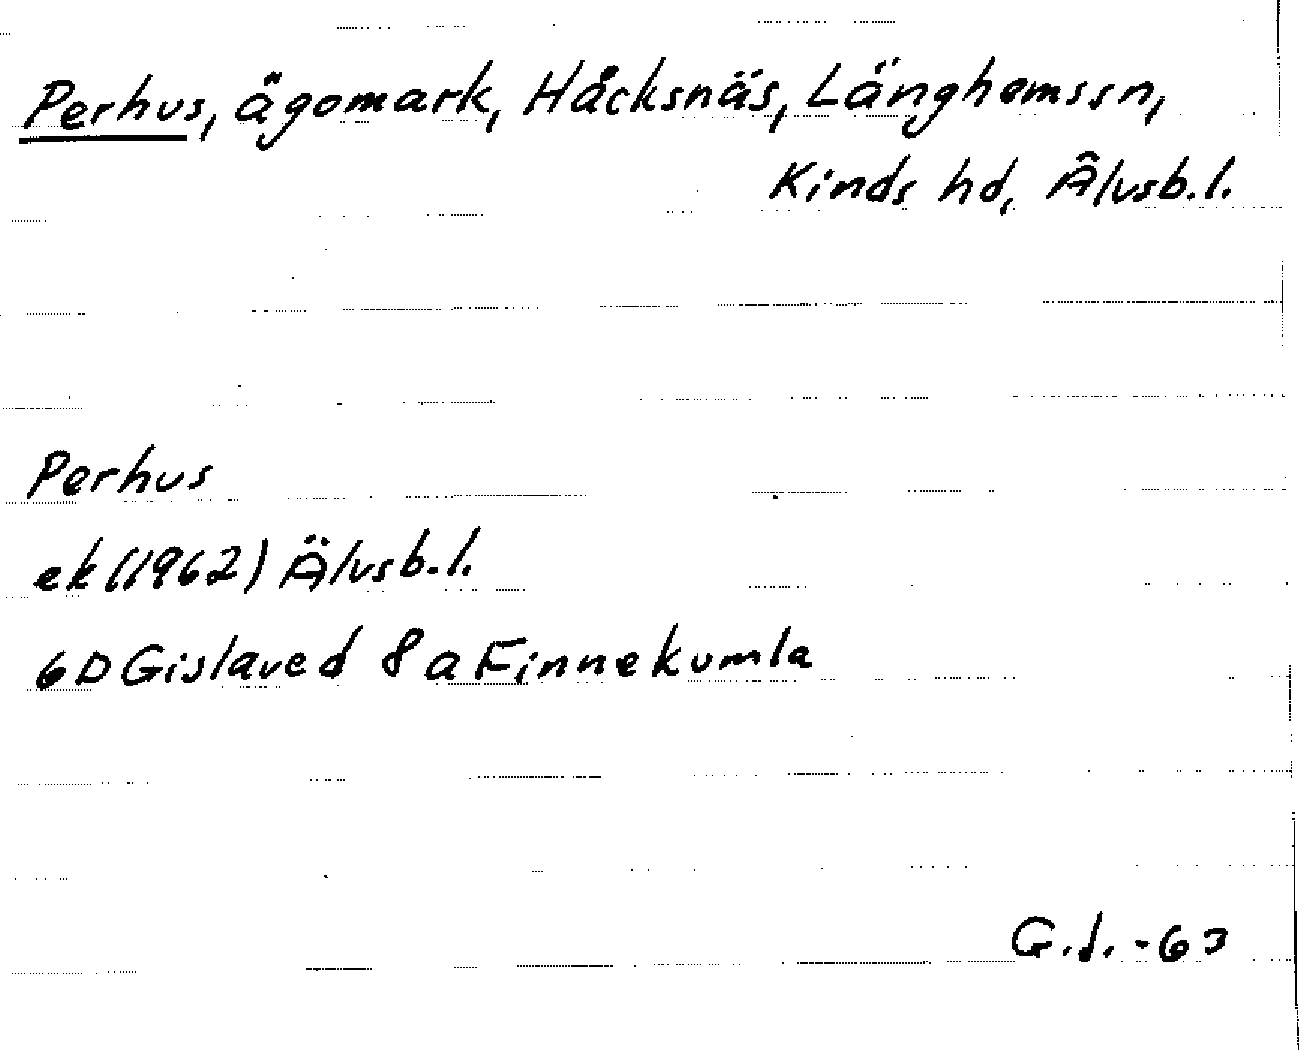 Perhus, ägomark, Håcksnäs, Länghemssn,
Kinds hd, Älvsb.l.
Perhus
ek (1962) Älvsb.l.
6D Gislaved 8a Finnekumla
G.J. -63